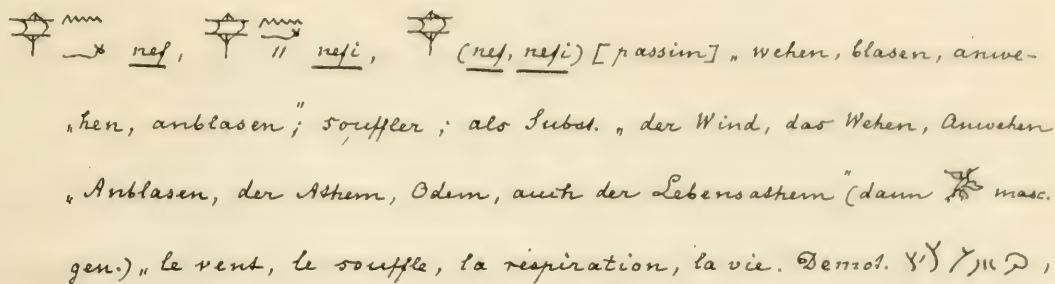 nef, nefi, (nef, nefi) [passim] „ wehen, blasen, anwe-
„hen, anblasen"; souffler; als Subst. „ der Wind, das Wehen, Anwehen
„ Anblasen, der Athem, Odem, auch der Lebensathem" (dann masc.
gen.) „ le vent, le souffle, la respiration, la vie. Demot.